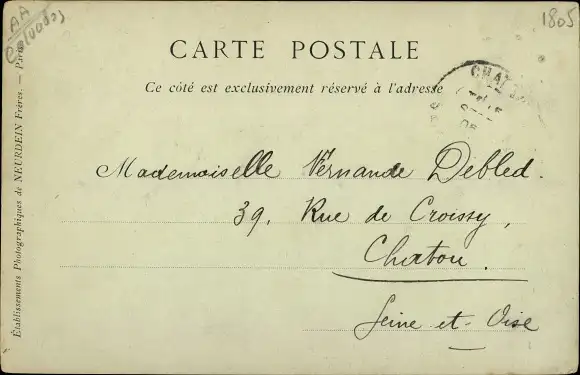 AA
Calvados
1805
CARTE POSTALE
Ce côté est exclusivement réservé à l'adresse
CHAT
Mademoiselle Fernande Debled.
39, Rue de Croissy,
Chatou.
Seine-et-Oise
Établissements Photographiques de NEURDEIN Frères. — Paris